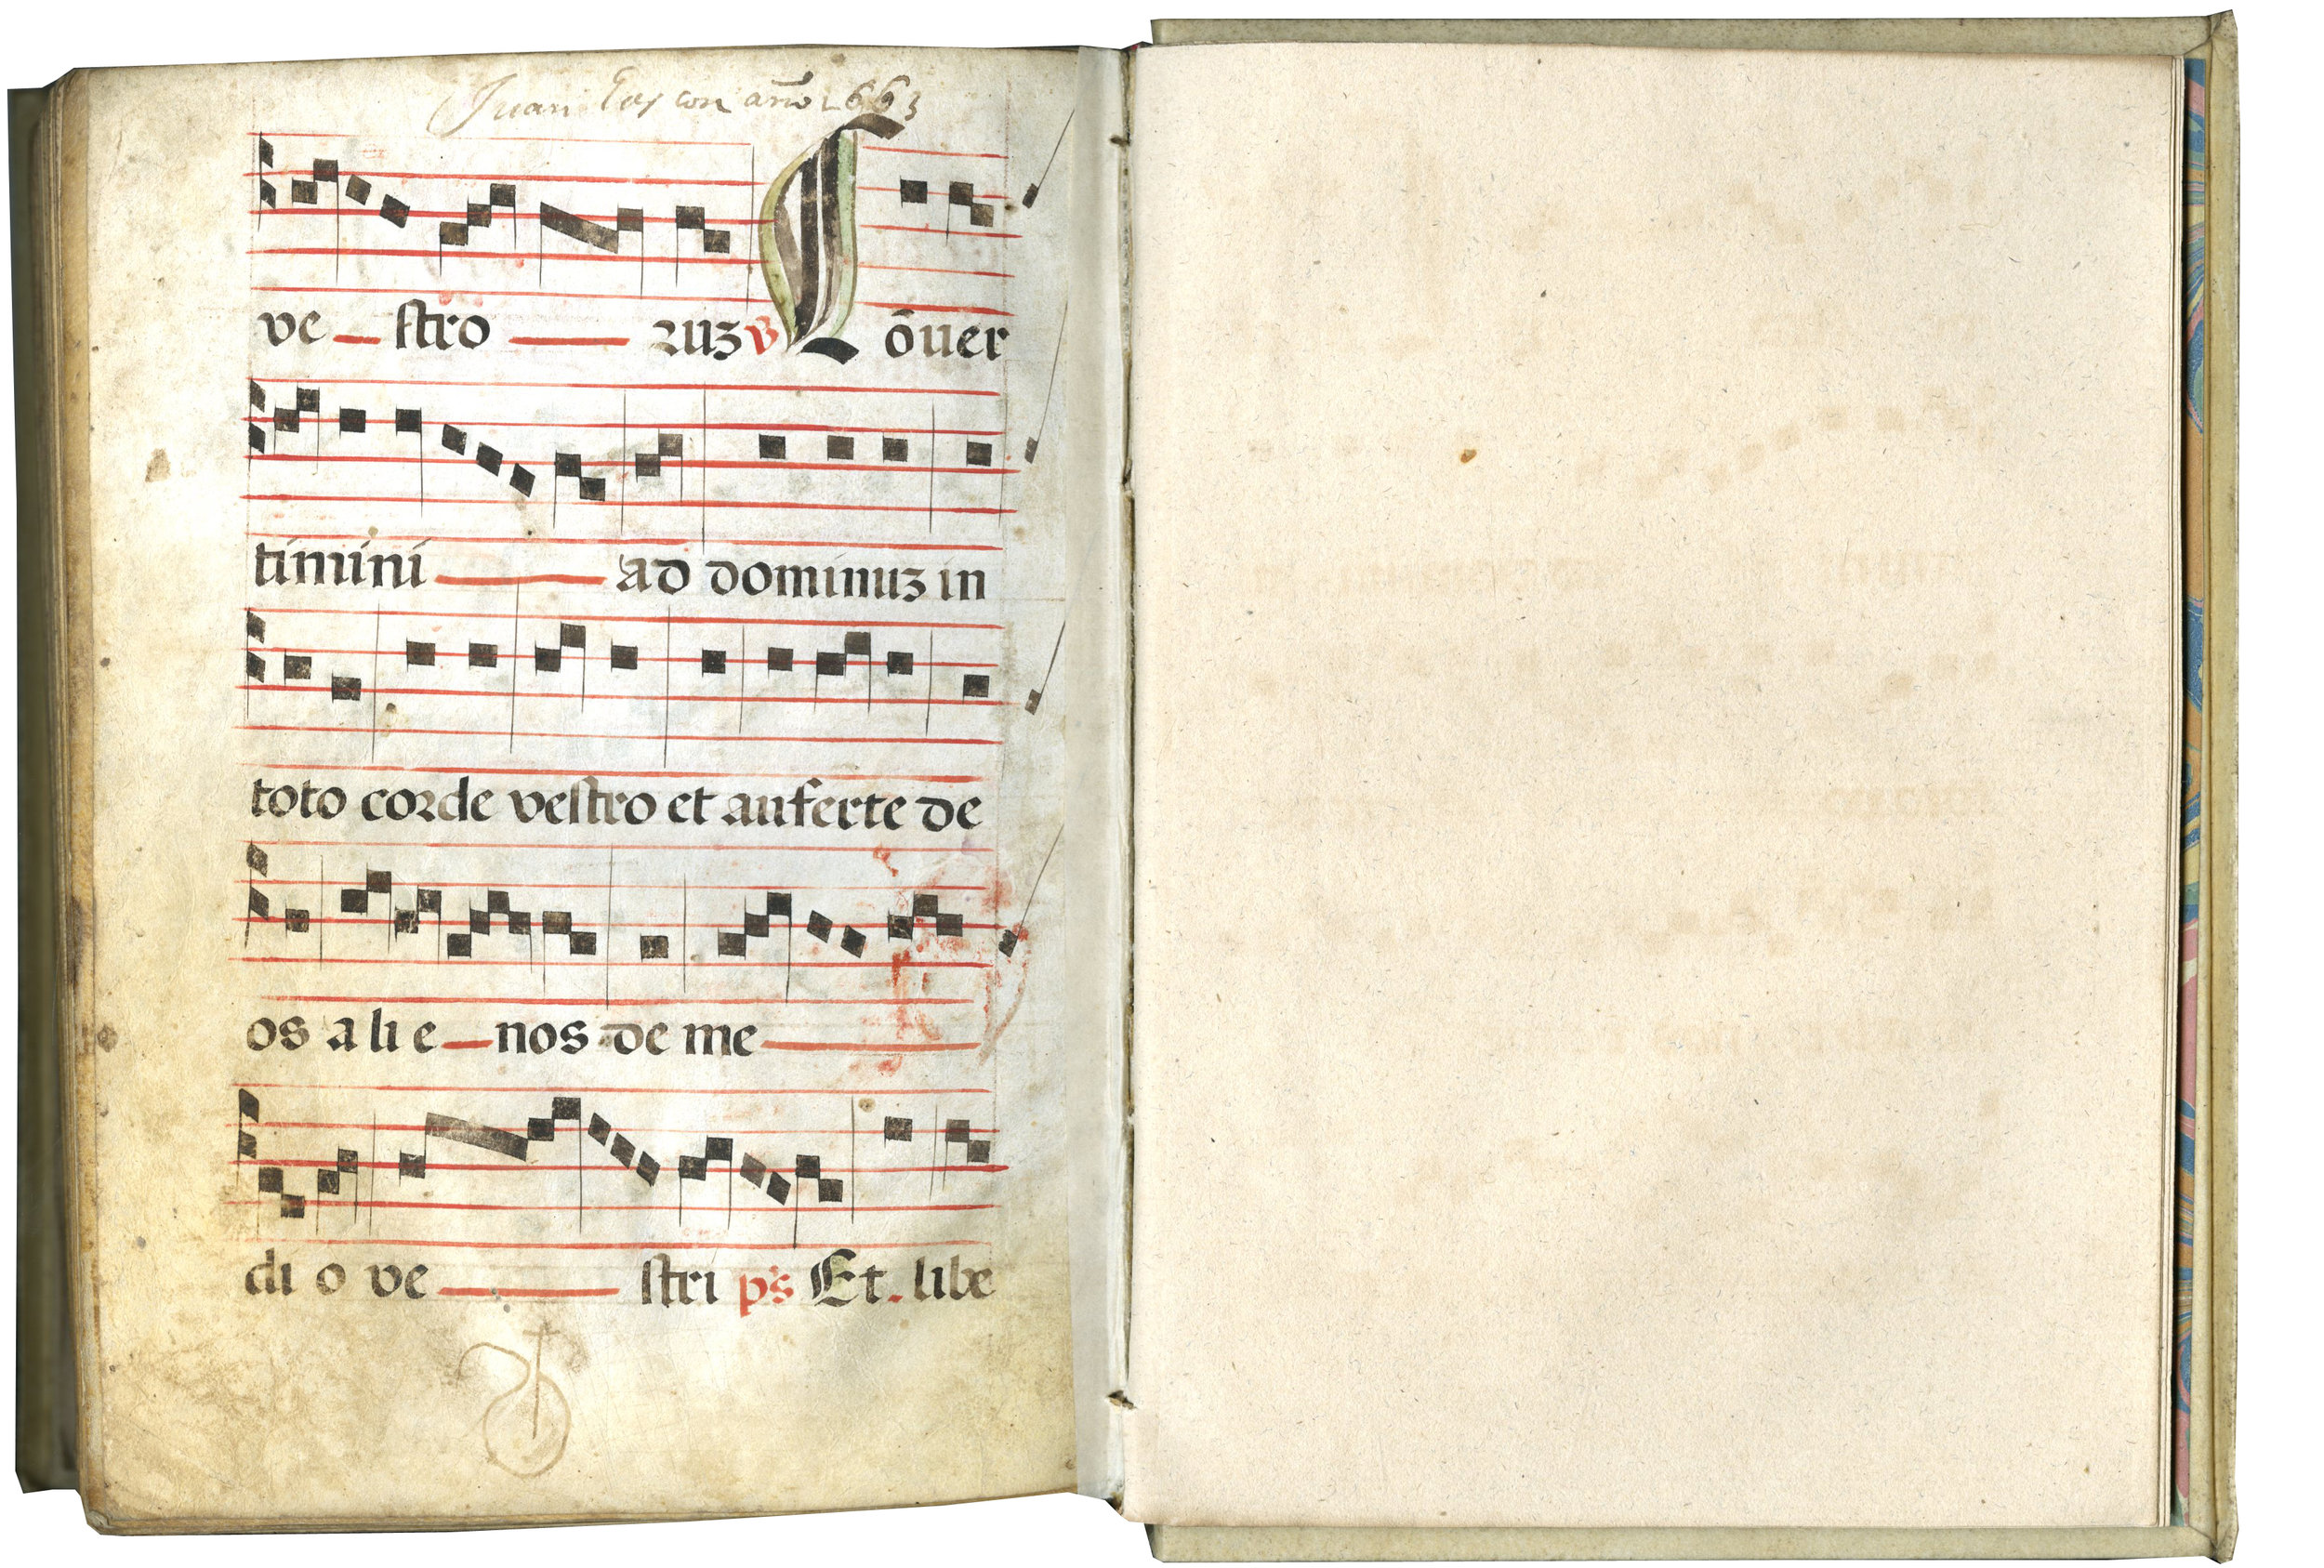 Juan año 1663
ve stro ꝛuꝫ ℣ Cōuer
timini ad dominuꝫ in
toto coꝛde veſtro et auferte de
os a li e nos de me
di o ve ſtri ps Et. libe